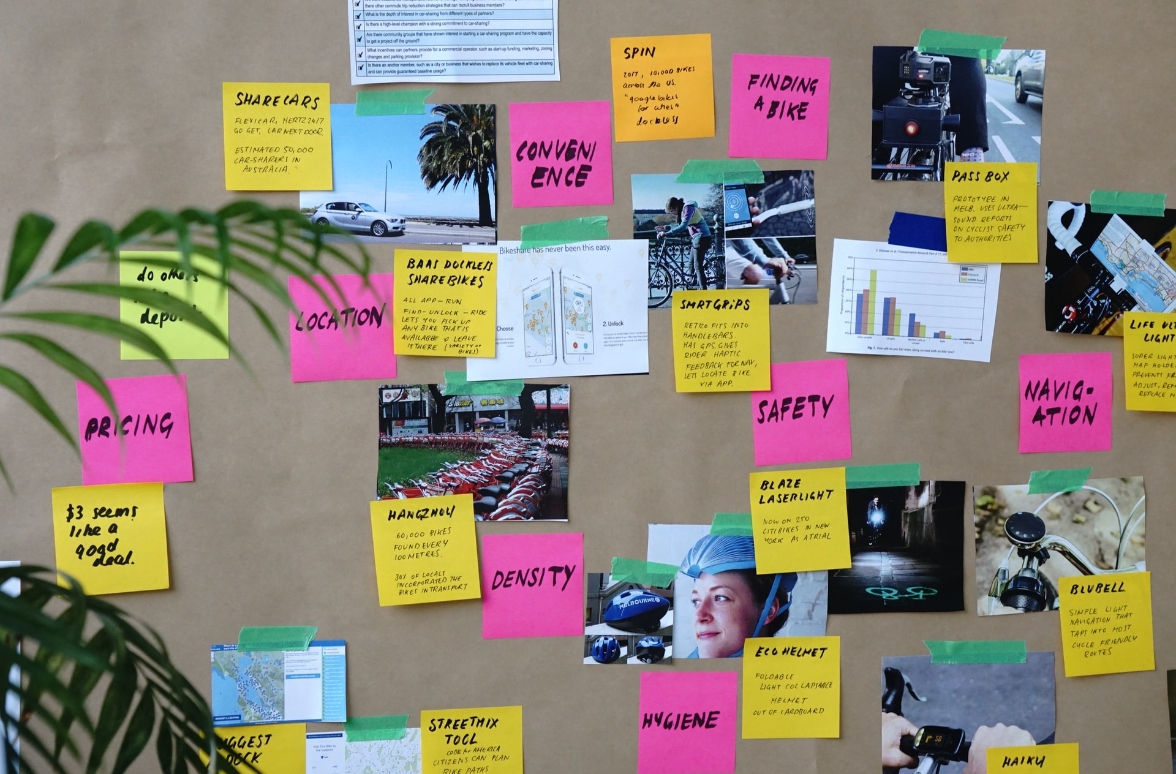 there other commute trip reduction strategies that can recruit business members?
What is the depth of interest in car-sharing from different types of partners?
Is there a high-level champion with a strong commitment to car-sharing?
Are there community groups that have shown interest in starting a car-sharing program and have the capacity
to get a project off the ground?
What incentives can partners provide for a commercial operator, such as start-up funding, marketing, zoning
changes and parking provision?
Is there an anchor member, such as a city or business that wishes to replace its vehicle fleet with car-sharing
and can provide guaranteed baseline usage?
SHARECARS
FLEXICAR, HERTZ 24/7
GO GET, CAR NEXT DOOR
ESTIMATED 50,000
CAR-SHARERS IN
AUSTRALIA.
CONVENI
ENCE
SPIN
2017, 10,000 BIKES
across the US.
"google bikes
for cities"
dockless
FINDING
A BIKE
PASS BOX
PROTOTYPE IN
MELB. USES ULTRA-
SOUND REPORTS
ON CYCLIST SAFETY
TO AUTHORITIES
do others
LOCATION
BAAS DOCKLESS
SHAREBIKES
ALL APP-RUN
FIND-UNLOCK-RIDE
LETS YOU PICK UP
ANY BIKE THAT IS
AVAILABLE & LEAVE
IT THERE (VARIETY OF
BIKES)
Bikeshare has never been this easy.
Choose
2 Unlock
SMRTGRIPS
RETRO FITS INTO
HANDLEBARS
HAS GPS GIVES
RIDER HAPTIC
FEEDBACK FOR NAV,
LETS LOCATE BIKE
VIA APP.
LIGHT
SUPER LIGHT
MAP HOLDER
REPLACE
PRICING
$3 seems
like a
good
deal.
SAFETY
NAVIG-
ATION
HANGZHOU
60,000 BIKES
FOUND EVERY
100 METRES.
30% OF LOCALS
INCORPORATED THE
BIKES IN TRANSPORT
DENSITY
BLAZE
LASERLIGHT
NOW ON 250
CITIBIKES IN NEW
YORK AS A TRIAL
MELBOURNE
BLUBELL
SIMPLE LIGHT
NAVIGATION THAT
TAPS INTO MOST
CYCLE FRIENDLY
ROUTES
ECO HELMET
FOLDABLE
LIGHT COLLAPSABLE
HELMET
OUT OF CARDBOARD
HYGIENE
STREETMIX
TOOL
CODE for AMERICA
CITIZENS CAN PLAN
BIKE PATHS
HAIKU